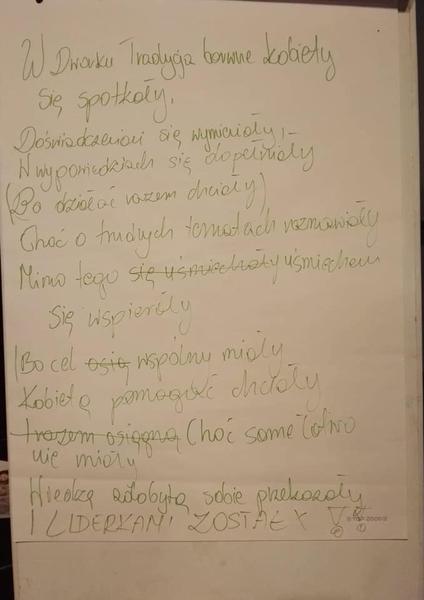 W Dworku Tradycja barwne kobiety
się spotkały.
Doświadczeniami się wymieniały,
W wypowiedziach się dopełniały
(Bo działać razem chciały)
Choć o trudnych tematach rozmawiały
Mimo tego się uśmiechały uśmiechem
się wspierały
(Bo cel osią wspólny miały
Kobietą pomagać chciały
i razem osiągną Choć same łatwo
nie miały
Wiedzę zdobytą sobie przekazały
I LIDERKAMI ZOSTAŁY